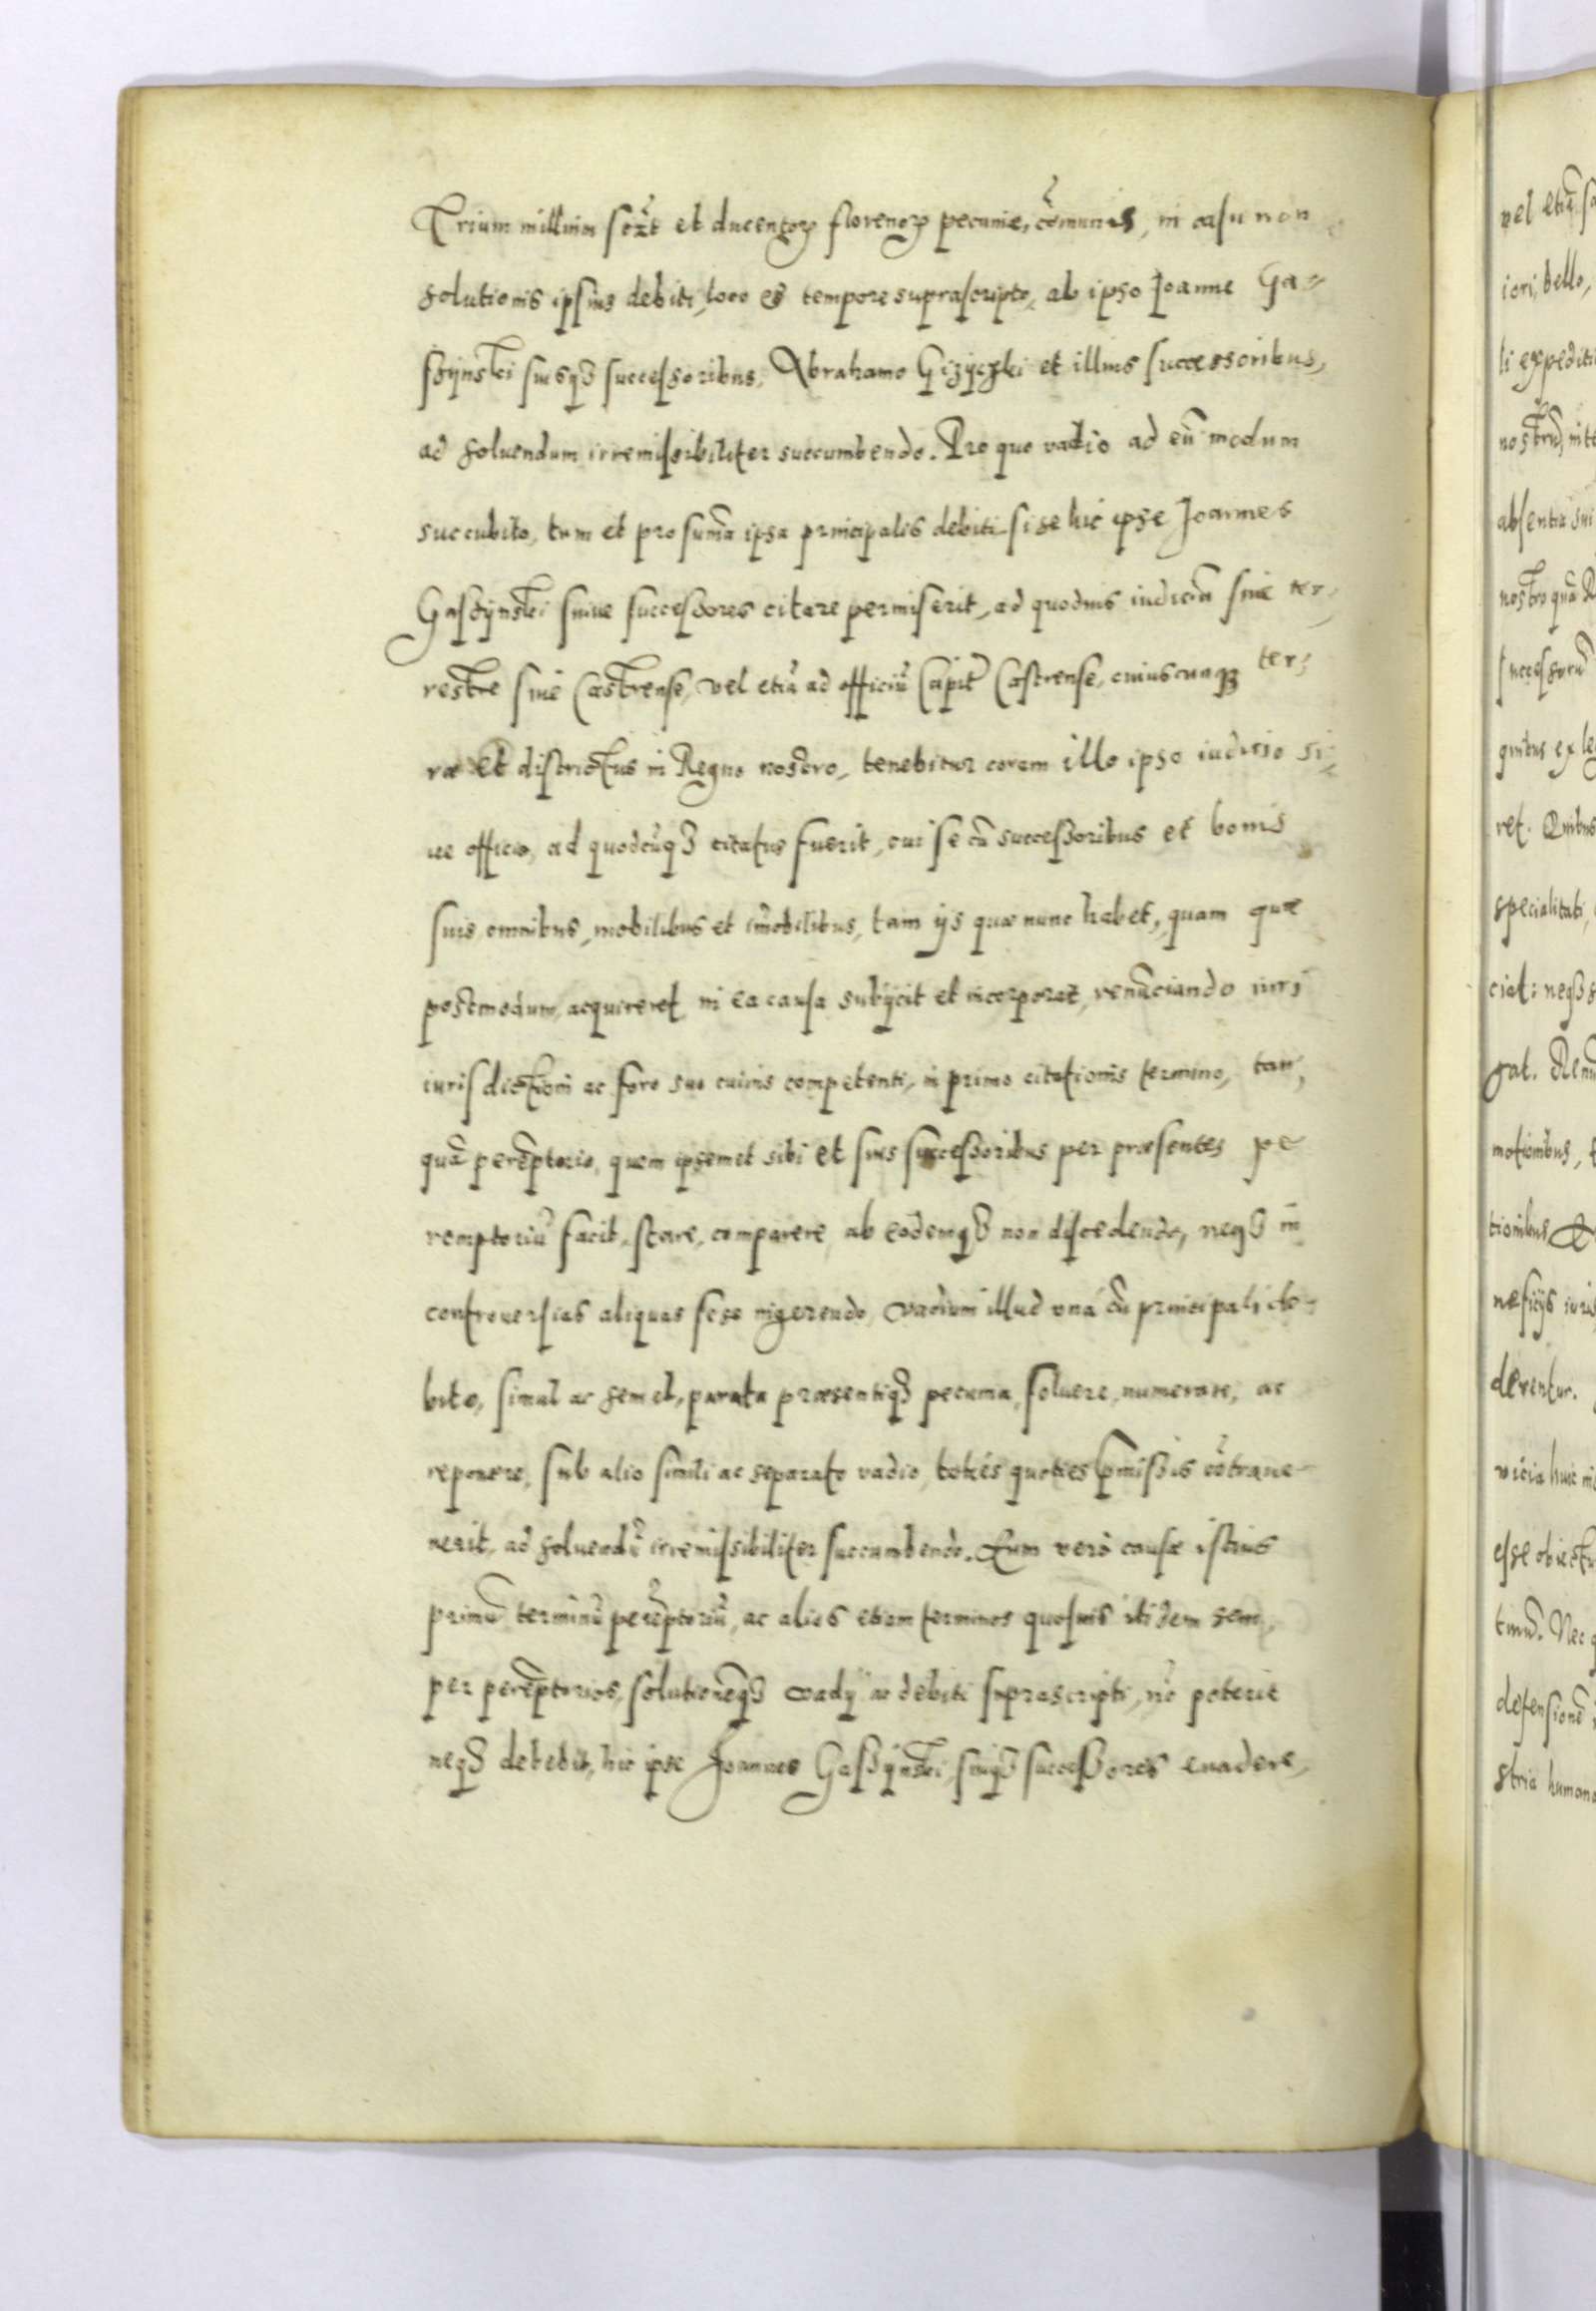 Trium millium sext et ducentoꝝ florenoꝝ pecuniæ, cõmunis, in casu non
solutionis ipsius debiti, loco et tempore suprascripto, ab ipso Joanne Ga-
sßÿnski suisqꝫ successoribus, Abrahamo Gizÿczki et illius successoribus,
ad soluendum irremissibiliter succumbendo. Pro quo vadio ad eũ modum
succubito, tum et pro suma̅ ipsa principalis debiti si se hic ipse Joannes
Gasßÿnski suiue successores citare permiserit, ad quoduis iudiciũ siue ter-
restre siue Castrense, vel etiã ad officiũ Capit̃ Castrense, cuiuscunqꝫ ter-
ræ et districtus in Regno nostro, tenebitur coram illo ipso iudicio si-
ue officio, ad quodcũqꝫ citatus fuerit, cui se cũ successoribus et bonis
suis omnibus, mobilibus et im̃obilibus, tam ÿs quæ nunc habet, quam quæ
postmodum acquireret, in ea causa subÿcit et incorporat, renũciando iuri
iurisdictioni ac foro suo cuiuis competenti, in primo citationis termino, tan-
quã perẽptorio, quem ipsemet sibi et suis successoribus per præsentes pe-
remptoriũ facit, stare, comparere, ab eodemqꝫ non discedendo, neqꝫ in
controuersias aliquas sese ingerendo, vadium illud unà cũ principali de-
bito, simul ac semel, parata præsentiqꝫ pecunia, soluere, numerare, ac
reponere, sub alio simili ac separato vadio, toties quoties p̃missis cõtraue-
nerit, ad soluendũ irremissibiliter succumbendo. Eum verò causæ istius
primũ terminũ perẽptoriũ, ac alios etiam terminos quosuis itidem sem-
per perẽptorios, solutionẽqꝫ vadÿ ac debiti suprascripti, nõ poterit
neqꝫ debebit, hic ipse Joannes Gasßÿnski, suiqꝫ successores euadere,
vel etiã
iori, bello,
absentia sui
successorũ
quibus ex le
ret. Quibus
specialitati,
ciat: neqꝫ
gat.
motionibus,
tionibus
neficÿs iuris
derentur.
esse
Nec
defensionẽ
stria humana